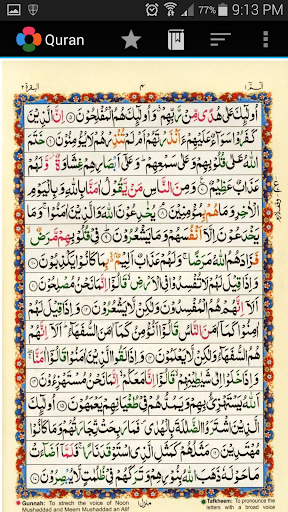 77% 9:13 PM
Quran
البقرة ٢
٤
الٓمّٓ ١
اُولٰٓئِكَ عَلٰى هُدًى مِّنْ رَّبِّهِمْ وَاُولٰٓئِكَ هُمُ الْمُفْلِحُوْنَ ۝ اِنَّ الَّذِيْنَ
كَفَرُوْا سَوَآءٌ عَلَيْهِمْ ءَاَنْذَرْتَهُمْ اَمْ لَمْ تُنْذِرْهُمْ لَا يُؤْمِنُوْنَ ۝ خَتَمَ
اللّٰهُ عَلٰى قُلُوْبِهِمْ وَعَلٰى سَمْعِهِمْ وَعَلٰٓى اَبْصَارِهِمْ غِشَاوَةٌ وَّلَهُمْ
عَذَابٌ عَظِيْمٌ ۝ وَمِنَ النَّاسِ مَنْ يَّقُوْلُ اٰمَنَّا بِاللّٰهِ وَبِالْيَوْمِ
الْاٰخِرِ وَمَا هُمْ بِمُؤْمِنِيْنَ ۝ يُخٰدِعُوْنَ اللّٰهَ وَالَّذِيْنَ اٰمَنُوْا وَمَا
يَخْدَعُوْنَ اِلَّآ اَنْفُسَهُمْ وَمَا يَشْعُرُوْنَ ۝ فِيْ قُلُوْبِهِمْ مَّرَضٌ
فَزَادَهُمُ اللّٰهُ مَرَضًا وَلَهُمْ عَذَابٌ اَلِيْمٌ بِمَا كَانُوْا يَكْذِبُوْنَ ۝
وَاِذَا قِيْلَ لَهُمْ لَا تُفْسِدُوْا فِي الْاَرْضِ قَالُوْٓا اِنَّمَا نَحْنُ مُصْلِحُوْنَ ۝
اَلَآ اِنَّهُمْ هُمُ الْمُفْسِدُوْنَ وَلٰكِنْ لَّا يَشْعُرُوْنَ ۝ وَاِذَا قِيْلَ لَهُمْ
اٰمِنُوْا كَمَآ اٰمَنَ النَّاسُ قَالُوْٓا اَنُؤْمِنُ كَمَآ اٰمَنَ السُّفَهَآءُ اَلَآ اِنَّهُمْ
هُمُ السُّفَهَآءُ وَلٰكِنْ لَّا يَعْلَمُوْنَ ۝ وَاِذَا لَقُوا الَّذِيْنَ اٰمَنُوْا قَالُوْٓا اٰمَنَّا
وَاِذَا خَلَوْا اِلٰى شَيٰطِيْنِهِمْ قَالُوْٓا اِنَّا مَعَكُمْ اِنَّمَا نَحْنُ مُسْتَهْزِءُوْنَ ۝
اَللّٰهُ يَسْتَهْزِئُ بِهِمْ وَيَمُدُّهُمْ فِيْ طُغْيَانِهِمْ يَعْمَهُوْنَ ۝ اُولٰٓئِكَ
الَّذِيْنَ اشْتَرَوُا الضَّلٰلَةَ بِالْهُدٰى فَمَا رَبِحَتْ تِّجَارَتُهُمْ وَمَا كَانُوْا
مُهْتَدِيْنَ ۝ مَثَلُهُمْ كَمَثَلِ الَّذِي اسْتَوْقَدَ نَارًا فَلَمَّآ اَضَآءَتْ
مَا حَوْلَهٗ ذَهَبَ اللّٰهُ بِنُوْرِهِمْ وَتَرَكَهُمْ فِيْ ظُلُمٰتٍ لَّا يُبْصِرُوْنَ
Gunnah: To strech the voice of Noon
Mushaddad and Meem Mushaddad an Alif
منزل ١
Tafkheem: To pronounce
the letters with a broad voice